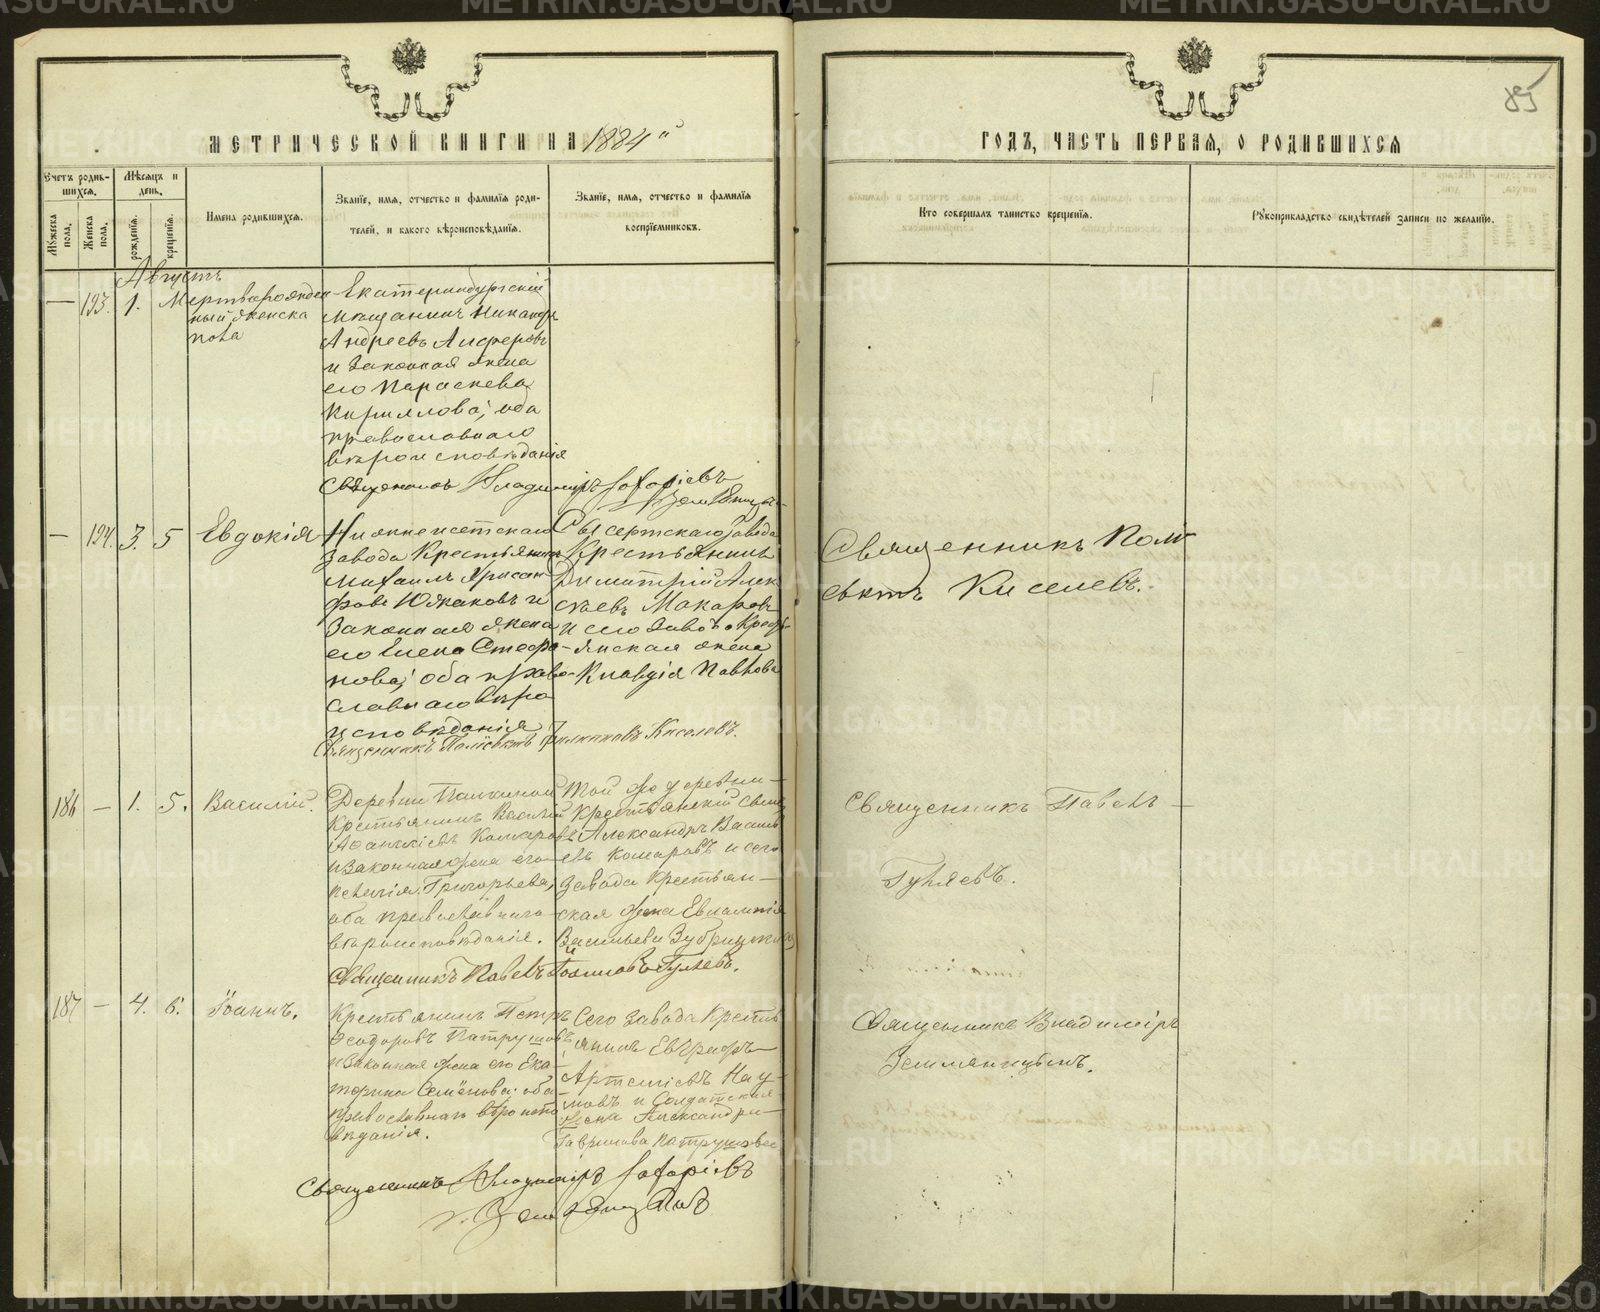 85
МЕТРИЧЕСКОЙ КНИГИ НА 1884й
ГОДЪ, ЧАСТЬ ПЕРВАЯ, О РОДИВШИХСЯ
Счетъ родив-
шихся.
Мѣсяцъ и
день.
Мужеска
пола.
Женска
пола.
рожденія.
крещенія.
Имена родившихся.
Званіе, имя, отчество и фамилія роди-
телей, и какого вѣроисповѣданія.
Званіе, имя, отчество и фамилія
воспріемниковъ.
Кто совершалъ таинство крещенія.
Рукоприкладство свидѣтелей записи по желанію.
Августъ
— 193. 1. Мертворожден
ный женска
пола
Екатеринбургскій
мѣщанинъ Никандръ
Андреевъ Алферовъ
и законная жена
его Параскева
Кириллова; оба
православнаго
вѣроисповѣданія
Священникъ Владиміръ
— 194. 3. 5 Евдокія
Нижнеисетскаго
завода крестьянинъ
Михаилъ Хрисан
фовъ Южаковъ и
законная жена
его Елена Стефа-
нова; оба право-
славнаго вѣро
исповѣданія
Сысертскаго завода
крестьянинъ
Димитрій Алек
сѣевъ Макаровъ
и сего завода крест-
янская жена
Клавдія Павлова
Священникъ Поліевктъ Киселевъ.
Священникъ Полі-
евктъ Киселевъ.
186 — 1. 5. Василій.
Деревни Палкиной
крестьянинъ Василій
Аѳанасіевъ Комаровъ
и законная жена его
Григорьева,
оба православнаго
вѣроисповѣданія.
Той же деревни
крестьянскій сынъ
Александръ Василь
евъ Комаровъ и сего
завода крестьян-
ская жена Евлампія
Васильева Зубрицкая
Священникъ Павелъ Гуляевъ.
Священникъ Павелъ
Гуляевъ.
187 — 4. 6. Іоаннъ.
Крестьянинъ Петръ
Ѳеодоровъ Патрушевъ
и законная жена его Ека-
терина Семёнова; оба
православнаго вѣроиспо
вѣданія.
Сего завода крестья
нинъ Евграфъ
Артеміевъ Нау-
мовъ и солдатская
жена Александра
Гаврилова Патрушева
Священникъ Владиміръ
Священникъ Владиміръ
Земляницынъ.
METRIKI.GASO-URAL.RU